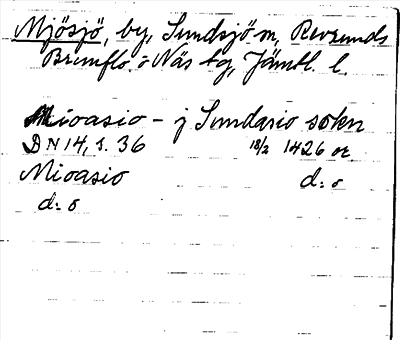 Mjösjö, by, Sundsjö sn, Revsunds
Brunflo o Näs tg, Jämtl. l.
Mioasio - j Sundasio sokn
DN 14, s. 36 18/2 1426 or.
Mioasio d:o
d:o